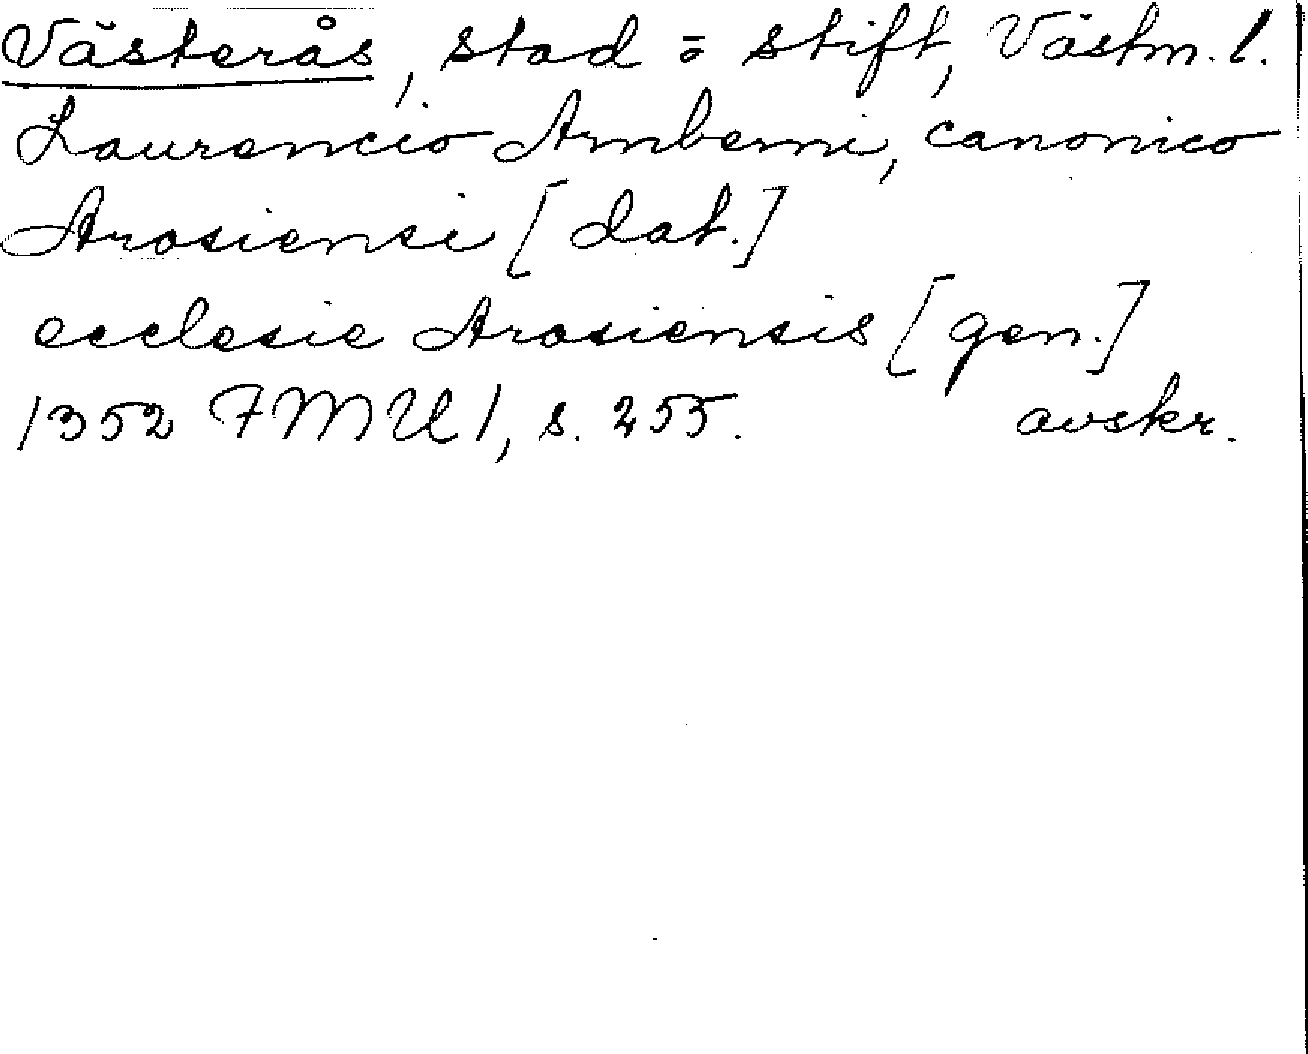 Västerås, stad o stift, Västm. l.
Laurencio Arnberni, canonico
Arosiensi [dat.]
ecclesie Arosiensis [gen.]
1352 FMU 1, s. 255. avskr.